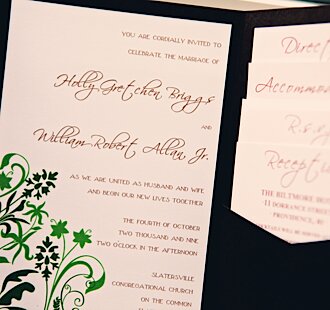 YOU ARE CORDIALLY INVITED TO
CELEBRATE THE MARRIAGE OF
Holly Gretchen Briggs
AND
William Robert Allan Jr.
AS WE ARE UNITED AS HUSBAND AND WIFE
AND BEGIN OUR NEW LIVES TOGETHER
THE FOURTH OF OCTOBER
TWO THOUSAND AND NINE
TWO O'CLOCK IN THE AFTERNOON
SLATERSVILLE
CONGREGATIONAL CHURCH
ON THE COMMON
Direct
Accommo
R.s.v
Recepti
THE BILTMORE HOTEL
11 DORRANCE STREET
PROVIDENCE, RI